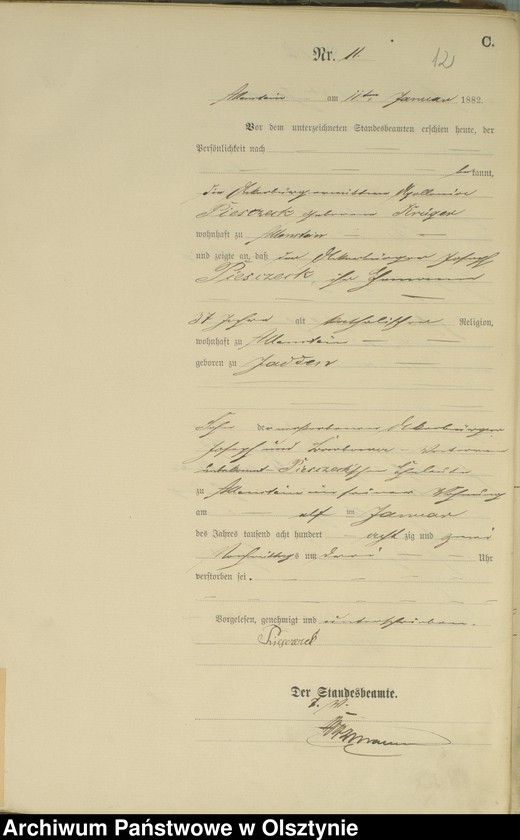 C.
Nr. 11
12
Allenstein am 11ten Januar 1882.
Vor dem unterzeichneten Standesbeamten erschien heute, der
Persönlichkeit nach
bekannt,
die Ackerbürgerwittwe Apollonia
Piesczeck geborene Krüger
wohnhaft zu Allenstein
und zeigte an, daß der Ackerbürger Joseph
Piesczeck, ihr Ehemann
Jahre alt katholischer Religion,
wohnhaft zu Allenstein
geboren zu Jadden
Sohn der verstorbenen Ackerbürger
Joseph und Barbara
unbekannt Piesczeckschen Eheleute
zu Allenstein in seiner Wohnung
am elf im Januar
des Jahres tausend acht hundert acht zig und zwei
Vormittags um drei Uhr
verstorben sei.
Vorgelesen, genehmigt und unterschrieben.
Piesczeck
Der Standesbeamte.
Archiwum Państwowe w Olsztynie